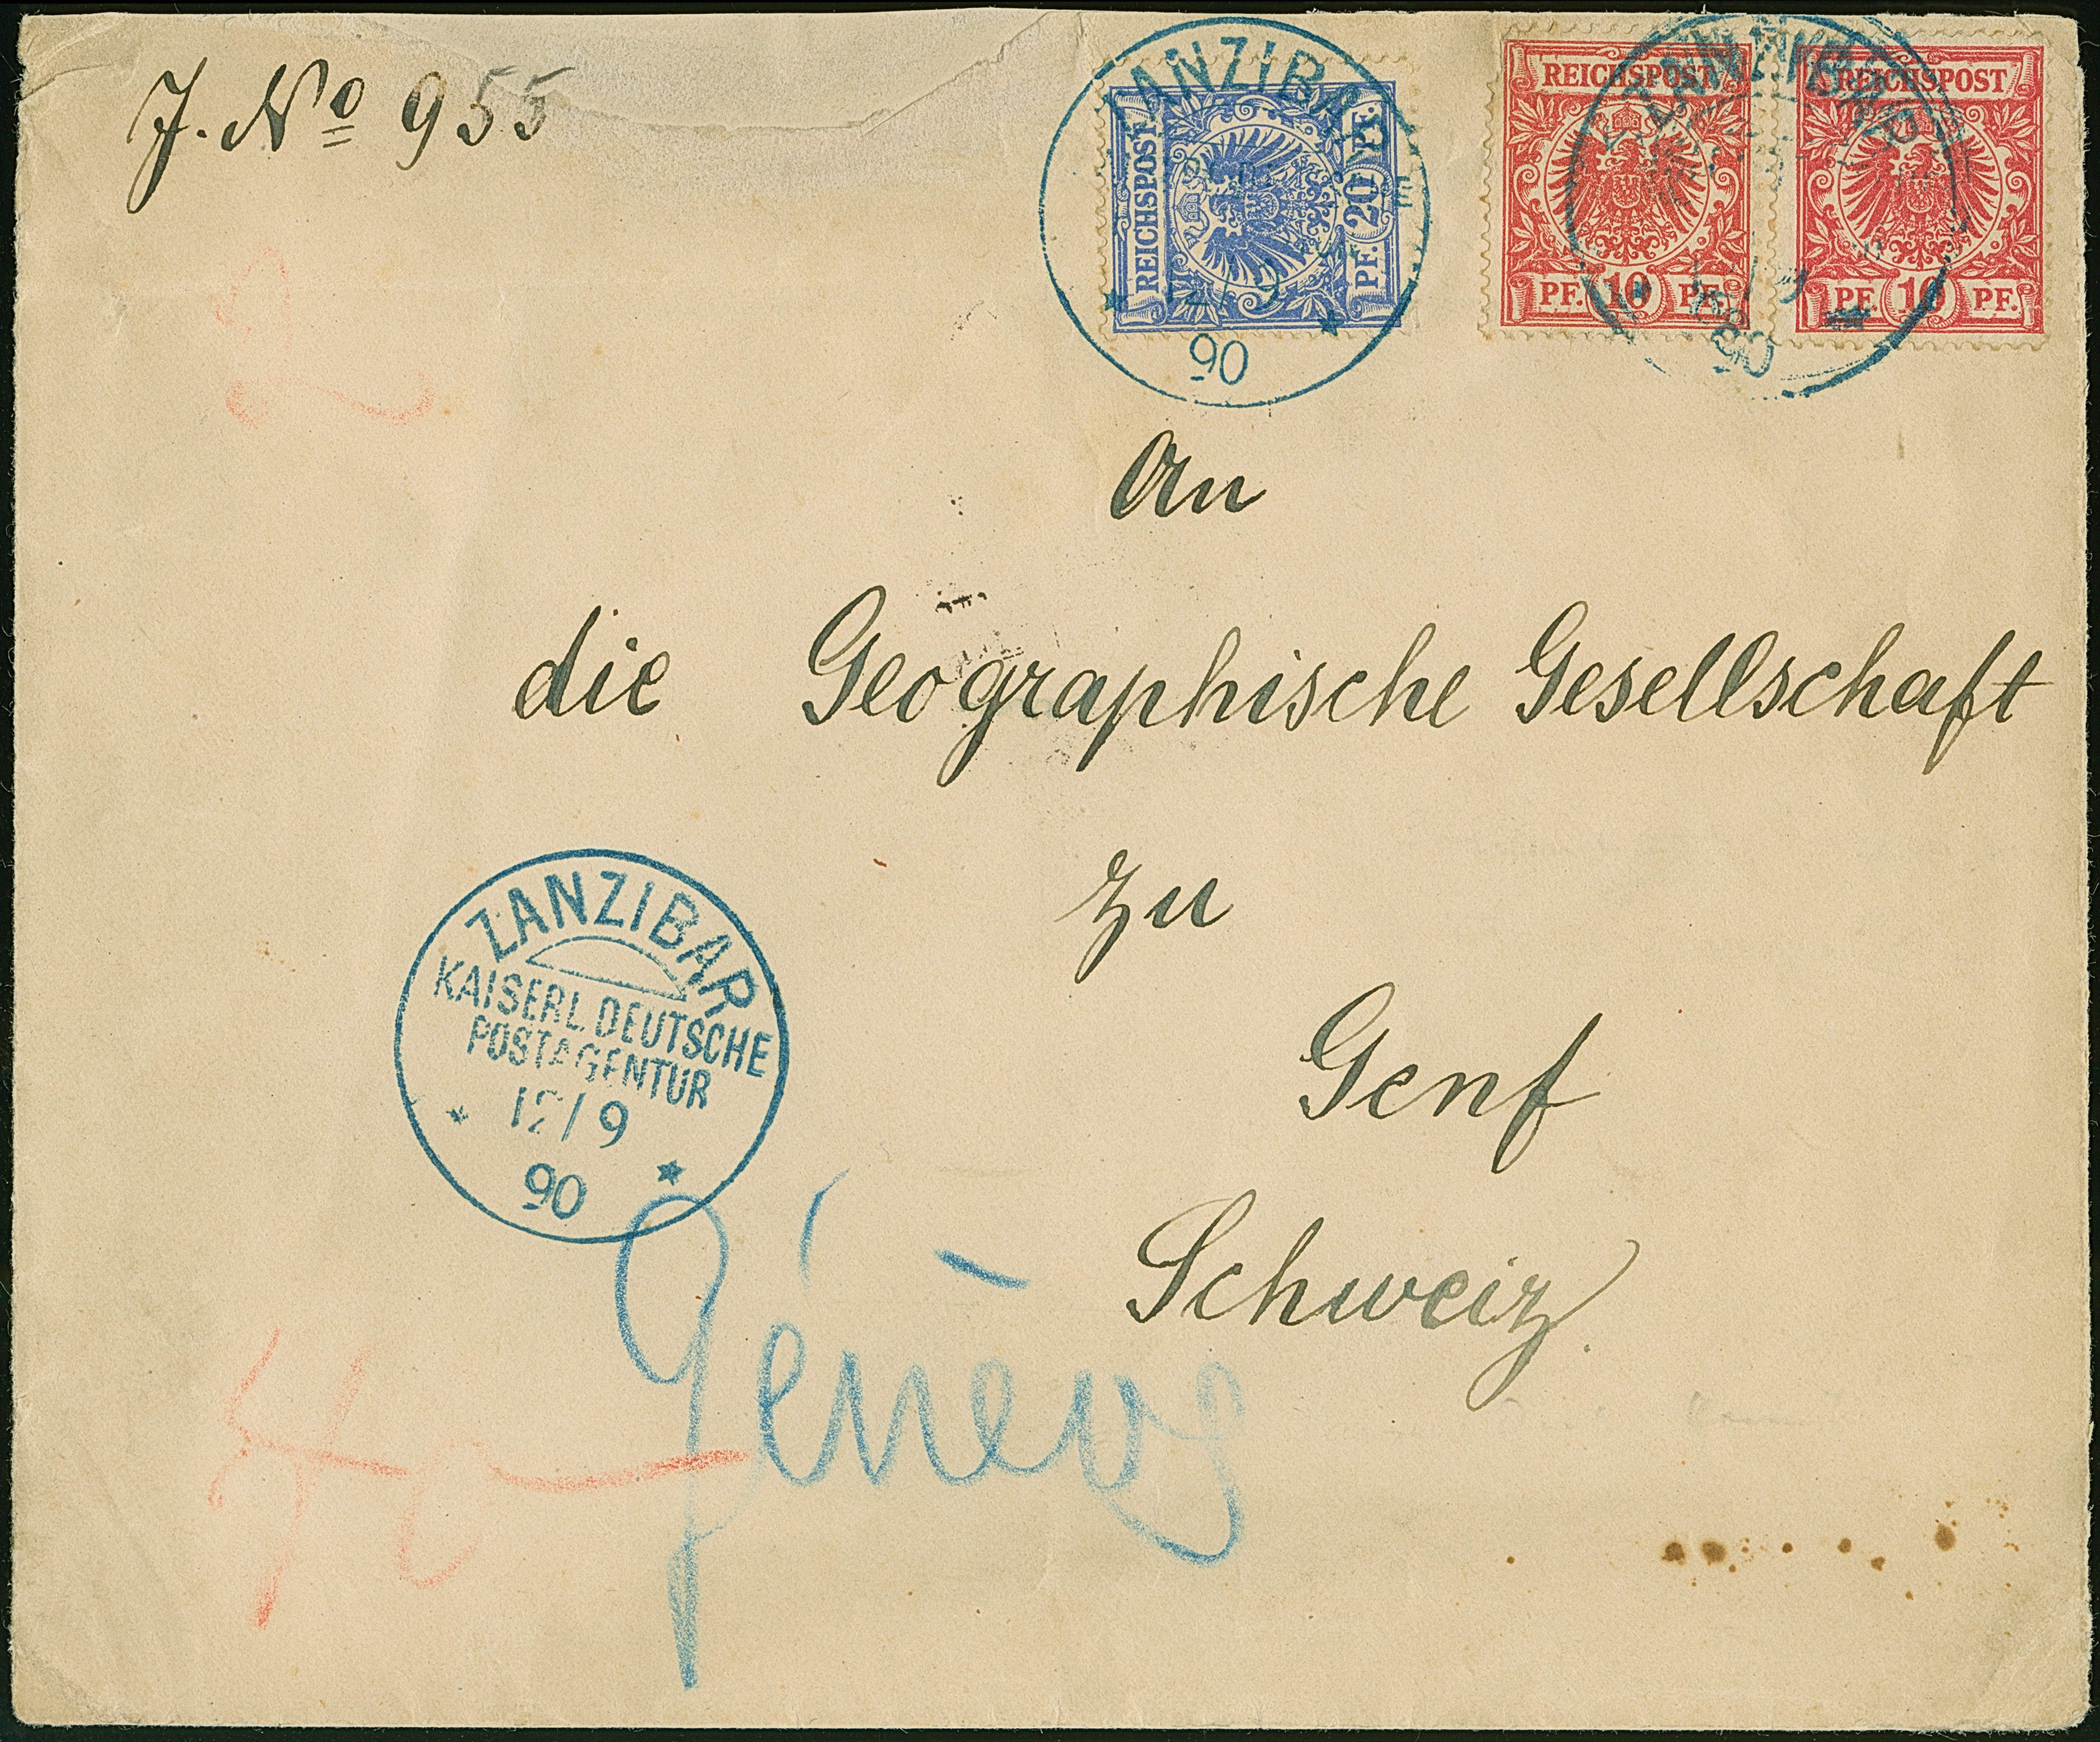 J. Nº 955
ZANZIBAR
90
REICHSPOST
PF. 20 PF.
REICHSPOST
PF. 10 PF.
REICHSPOST
PF. 10 PF.
90
An
die Geographische Gesellschaft
zu
Genf
Schweiz
ZANZIBAR
KAISERL. DEUTSCHE
POSTAGENTUR
12/9
90
Génève